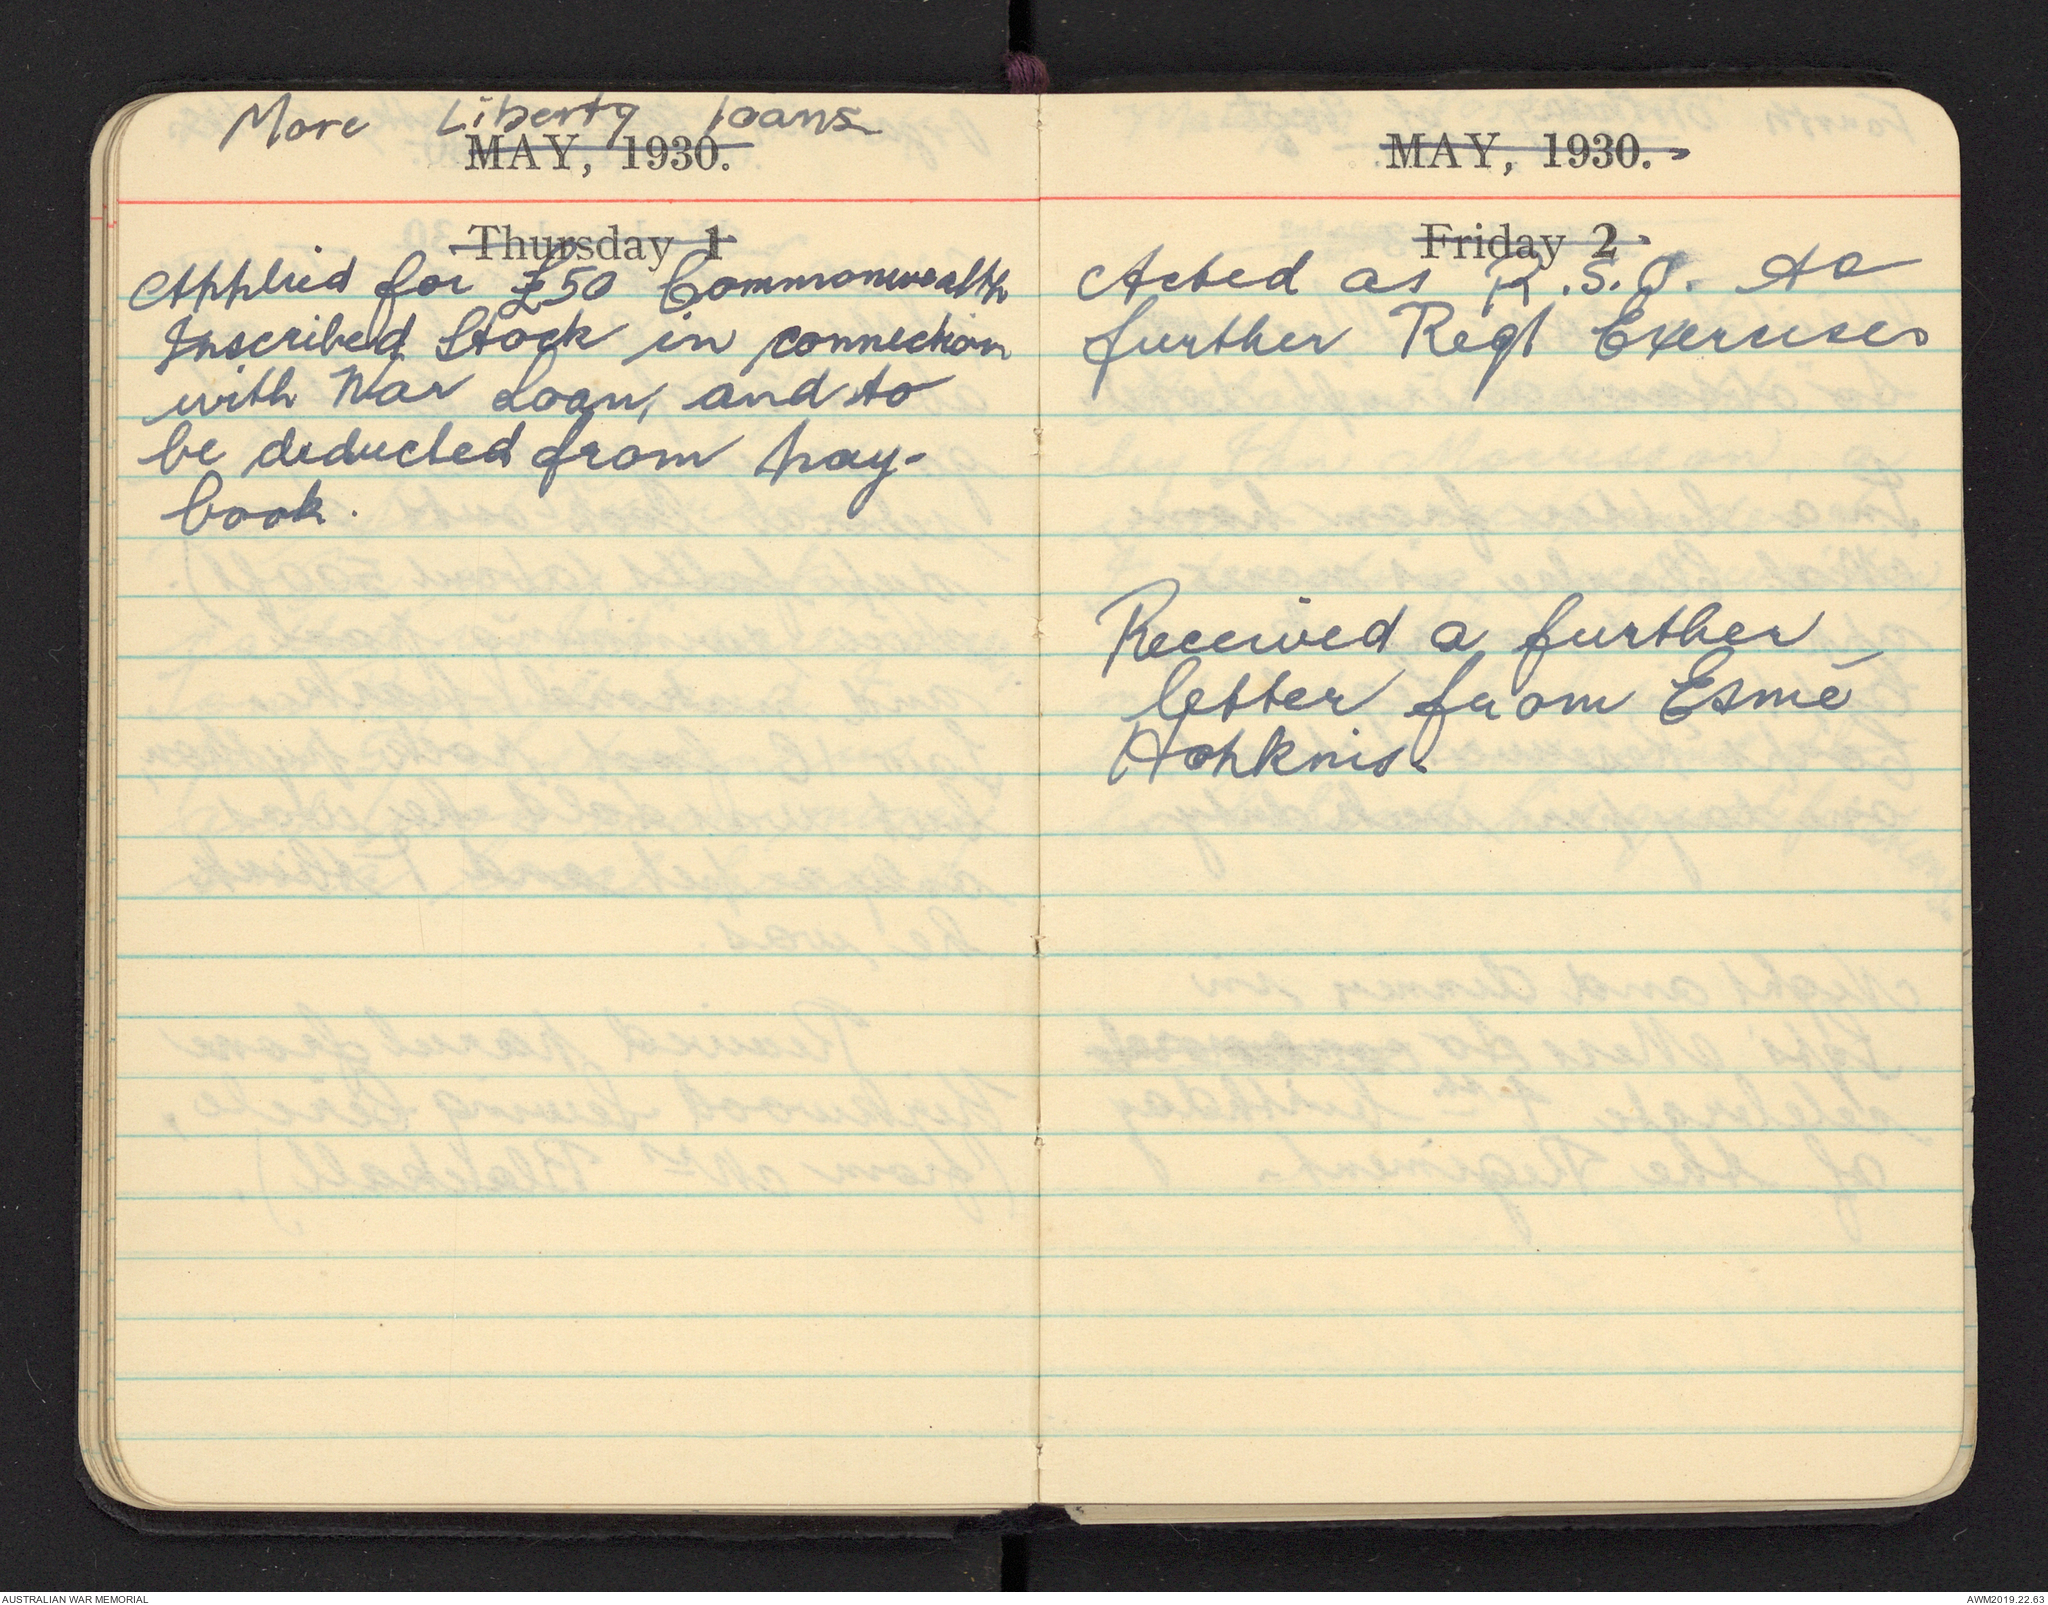 More Liberty loans
MAY, 1930.
Thursday 1
Applied for £50 Commonwealth
Inscribed Stock in connection
with War Loan, and to
be deducted from pay-
book.
MAY, 1930.
Friday 2
Acted as R.S.O. to
further Regt Exercises
Received a further
letter from Esmé
Hopkins.
AUSTRALIAN WAR MEMORIAL
AWM2019.22.63